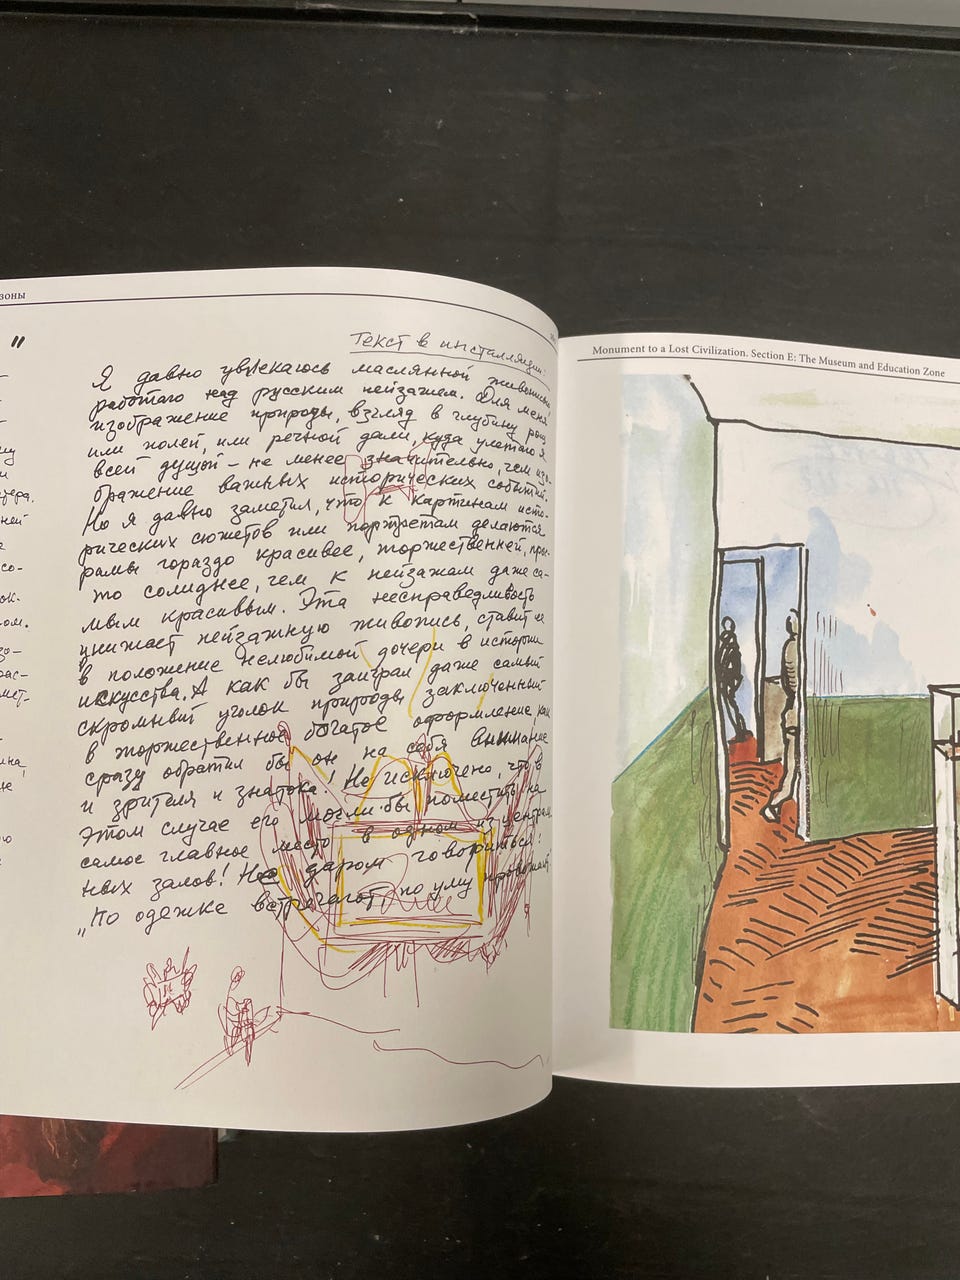 зоны
"
Текст в инсталляции:
Я давно увлекаюсь маслянной живописью,
работаю над русским пейзажем. Для меня
изображение природы, взгляд в глубину рощ
или полей, или речной дали, куда улетаю я
всей душой – не менее значительно, чем изо-
бражение важных исторических событий.
Но я давно заметил, что к картинам исто-
рических сюжетов или портретам делаются
рамы гораздо красивее, торжественней, про-
то солиднее, чем к пейзажам даже са-
мым красивым. Эта несправедливость
унижает пейзажную живопись, ставит её
в положение нелюбимой дочери в истории
искусства. А как бы заиграл даже самый
скромный уголок природы, заключенный
в торжественное богатое оформление, как
сразу обратил бы он на себя внимание
и зрителя и знатока! Не исключено, что в
этом случае его могли бы поместить на
самое главное место в одном из централь
ных залов! Недаром говориться:
„По одежке встречают, по уму провожают"
тера.
ней
со-
ок.
ом.
рас-
мет-
Monument to a Lost Civilization. Section E: The Museum and Education Zone